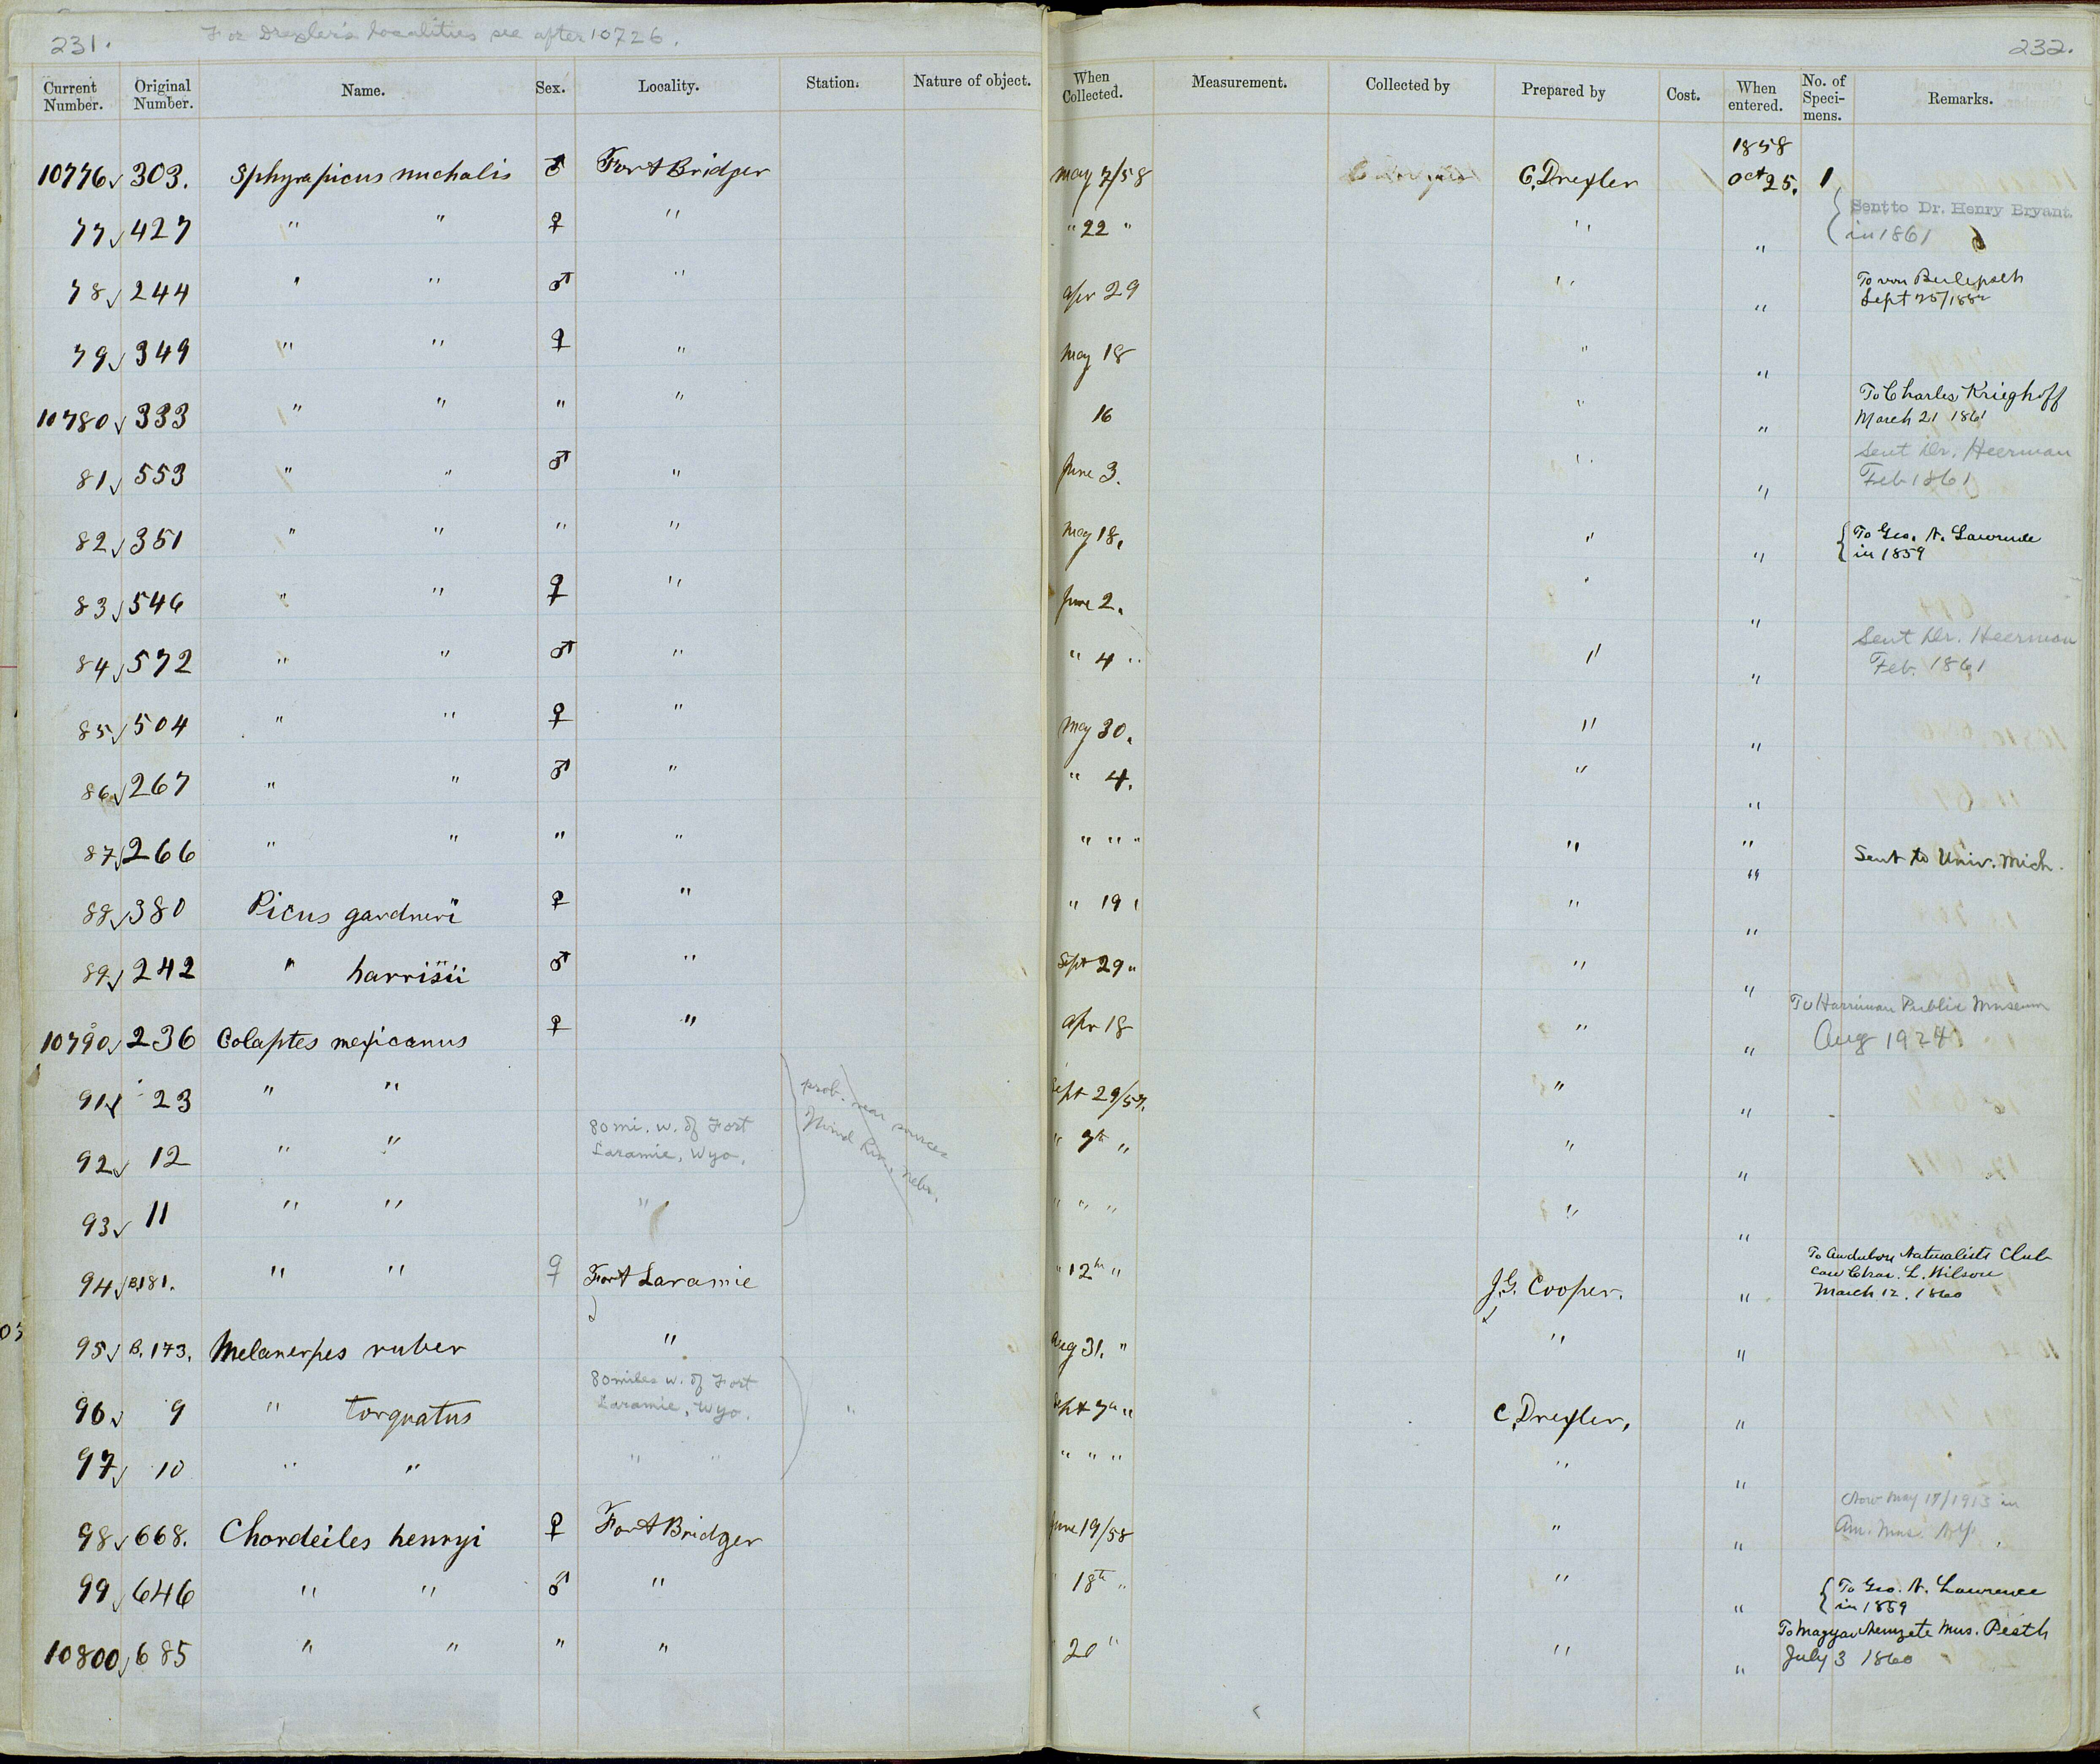 231. For Drexler's localities see after 10726. 232.
Current Number. Original Number. Name. Sex. Locality. Station. Nature of object. When Collected. Measurement. Collected by Prepared by Cost. When entered. No. of Speci-mens. Remarks.
1858
10776 √ 303. Sphyrapicus nuchalis ♂ Fort Bridger May 7/58 C. Drexler Oct 25. 1
77 √ 427 " " ♀ " " 22 " " " Sent to Dr. Henry Bryant in 1861
78 √ 244 " " ♂ " Apr 29 " " To von Berlepsch Sept 25/188
79 √ 349 " " ♀ " May 18 " "
10780 √ 333 " " " " 16 " " To Charles Krieghoff March 21 1861
81 √ 553 " " ♂ " June 3. " " Sent Dr. Heerman Feb 1861
82 √ 351 " " " " May 18. " " To Geo. N. Lawrence in 1859
83 √ 546 " " ♀ " June 2. " "
84 √ 572 " " ♂ " " 4 " " " Sent Dr. Heerman Feb. 1861
85 √ 504 " " ♀ " May 30. " "
86 √ 267 " " ♂ " " 4. " "
87 √ 266 " " " " " " " " " Sent to Univ. Mich.
88 √ 380 Picus gardneri ♀ " " 19 " "
89 √ 242 " harrisii ♂ " Sept 29 " " "
10790 √ 236 Colaptes mexicanus ♀ " Apr 18 " " To Harriman Public Museum Aug 1924
91 √ 23 " " prob. near sources Wind Riv. Nebr. Sept 29/57. " "
92 √ 12 " " 80 mi. w. of Fort Laramie, Wyo. " 7th " " "
93 √ 11 " " " " " " " "
94 √ B.181. " " ♀ Fort Laramie " 12th " J.G. Cooper. " To Audubon Naturalists Club care Chas. L. Wilson March 12. 1860
95 √ B. 173. Melanerpes ruber " Aug 31. " " "
96 √ 9 " torquatus 80 miles w. of Fort Laramie, Wyo. " Sept 7th " C. Drexler. "
97 √ 10 " " " " " " " " "
98 √ 668. Chordeiles henryi ♀ Fort Bridger June 19/58 " " Now May 17/1913 in Am. Mus. N.Y.
99 √ 646 " " ♂ " " 18th " " " To Geo. N. Lawrence in 1859
10800 √ 685 " " " " " 20 " " " To Magyar Nemzete Mus. Pesth July 3 1860